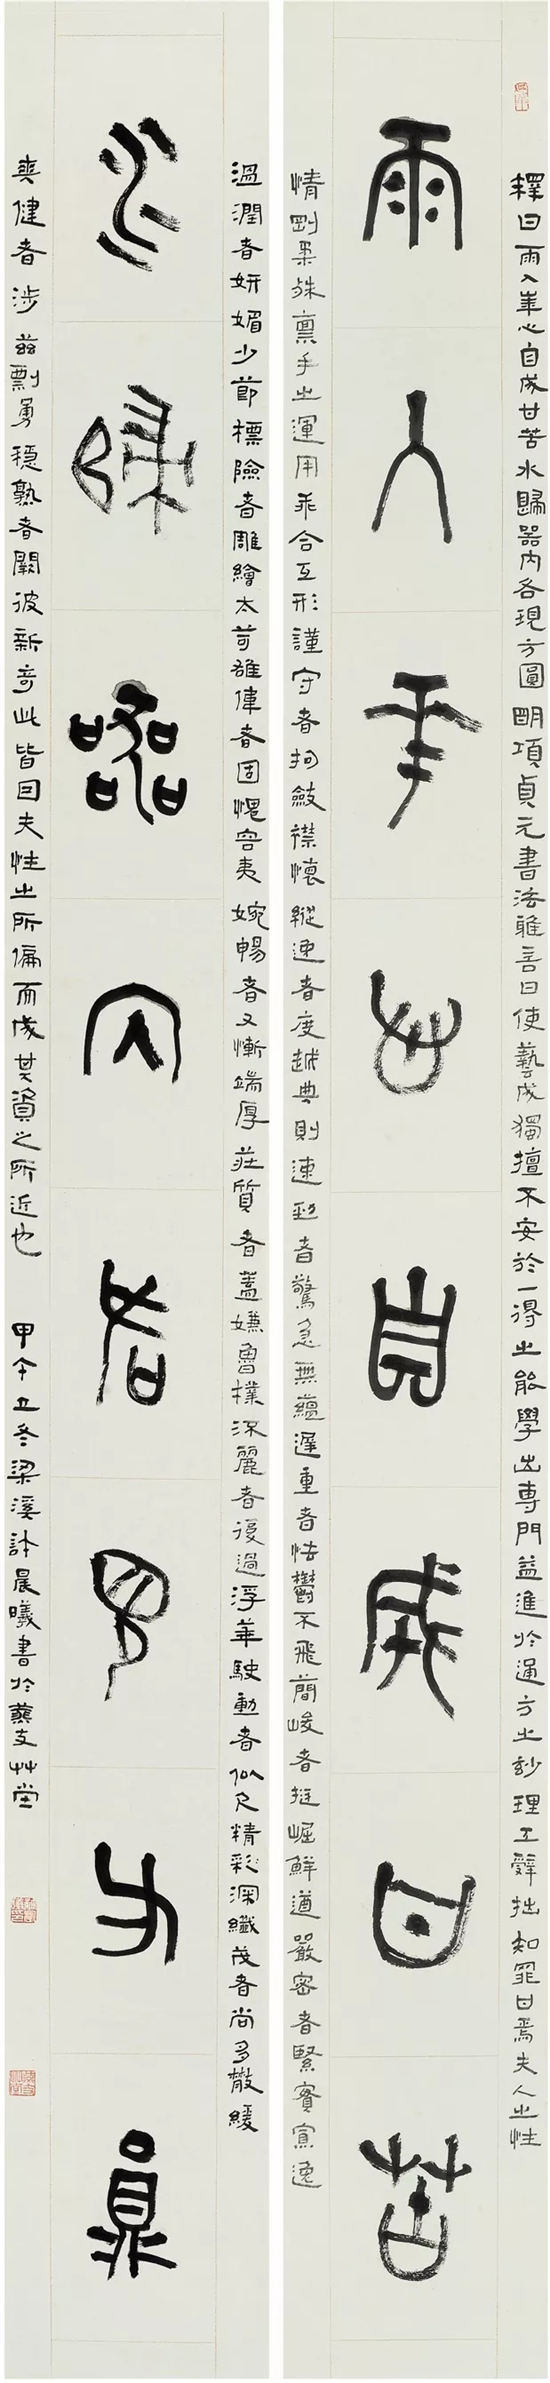 釋曰雨入華心自成甘苦水歸器內各現方圓明項貞元書法雅言曰使藝成獨擅不安於一得之能學出專門益進於通方之妙理工辭拙知罪甘焉夫人之性
雨入華心自成甘苦
情剛柔殊稟手之運用乖合互形謹守者拘斂襟懷縱逸者度越典則速勁者驚急無蘊遲重者怯鬱不飛簡峻者挺崛鮮遒嚴密者緊實寡逸
溫潤者妍媚少節標險者雕繪太苛雄偉者固愧容夷婉暢者又慚端厚莊質者蓋嫌魯樸流麗者復過浮華駛動者似欠精彩深纖茂者尚多散緩
水歸器內各現方圓
爽健者涉茲剽勇穩熟者闕彼新奇此皆因夫性之所偏而成其資之所近也 甲午立冬梁溪許晨曦書於支艸堂